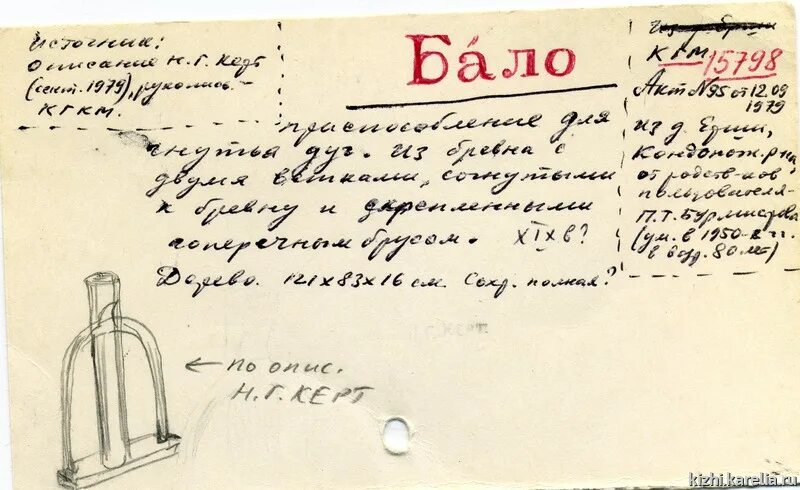 Источник:
Описание Н.Г. Керт
(сент. 1979), рукопись.-
КГКМ.
Ба́ло
Из д. Ерши
КГКМ
15798
Акт №95 от 12.09
1979
из д. Ерши,
Кондопож. р-на
от родств-ков
пользователя-
П.Т. Бурмистрова
(ум. в 1950-х гг.
в возр. 80 лет)
приспособление для
гнутья дуг. Из бревна с
двумя ветками, согнутыми
к бревну и укрепленными
поперечным брусом. XIX в?
Дерево. 121 х 83 х 16 см. Сохр. полная?
← по опис.
Н.Г. КЕРТ
kizhi.karelia.ru